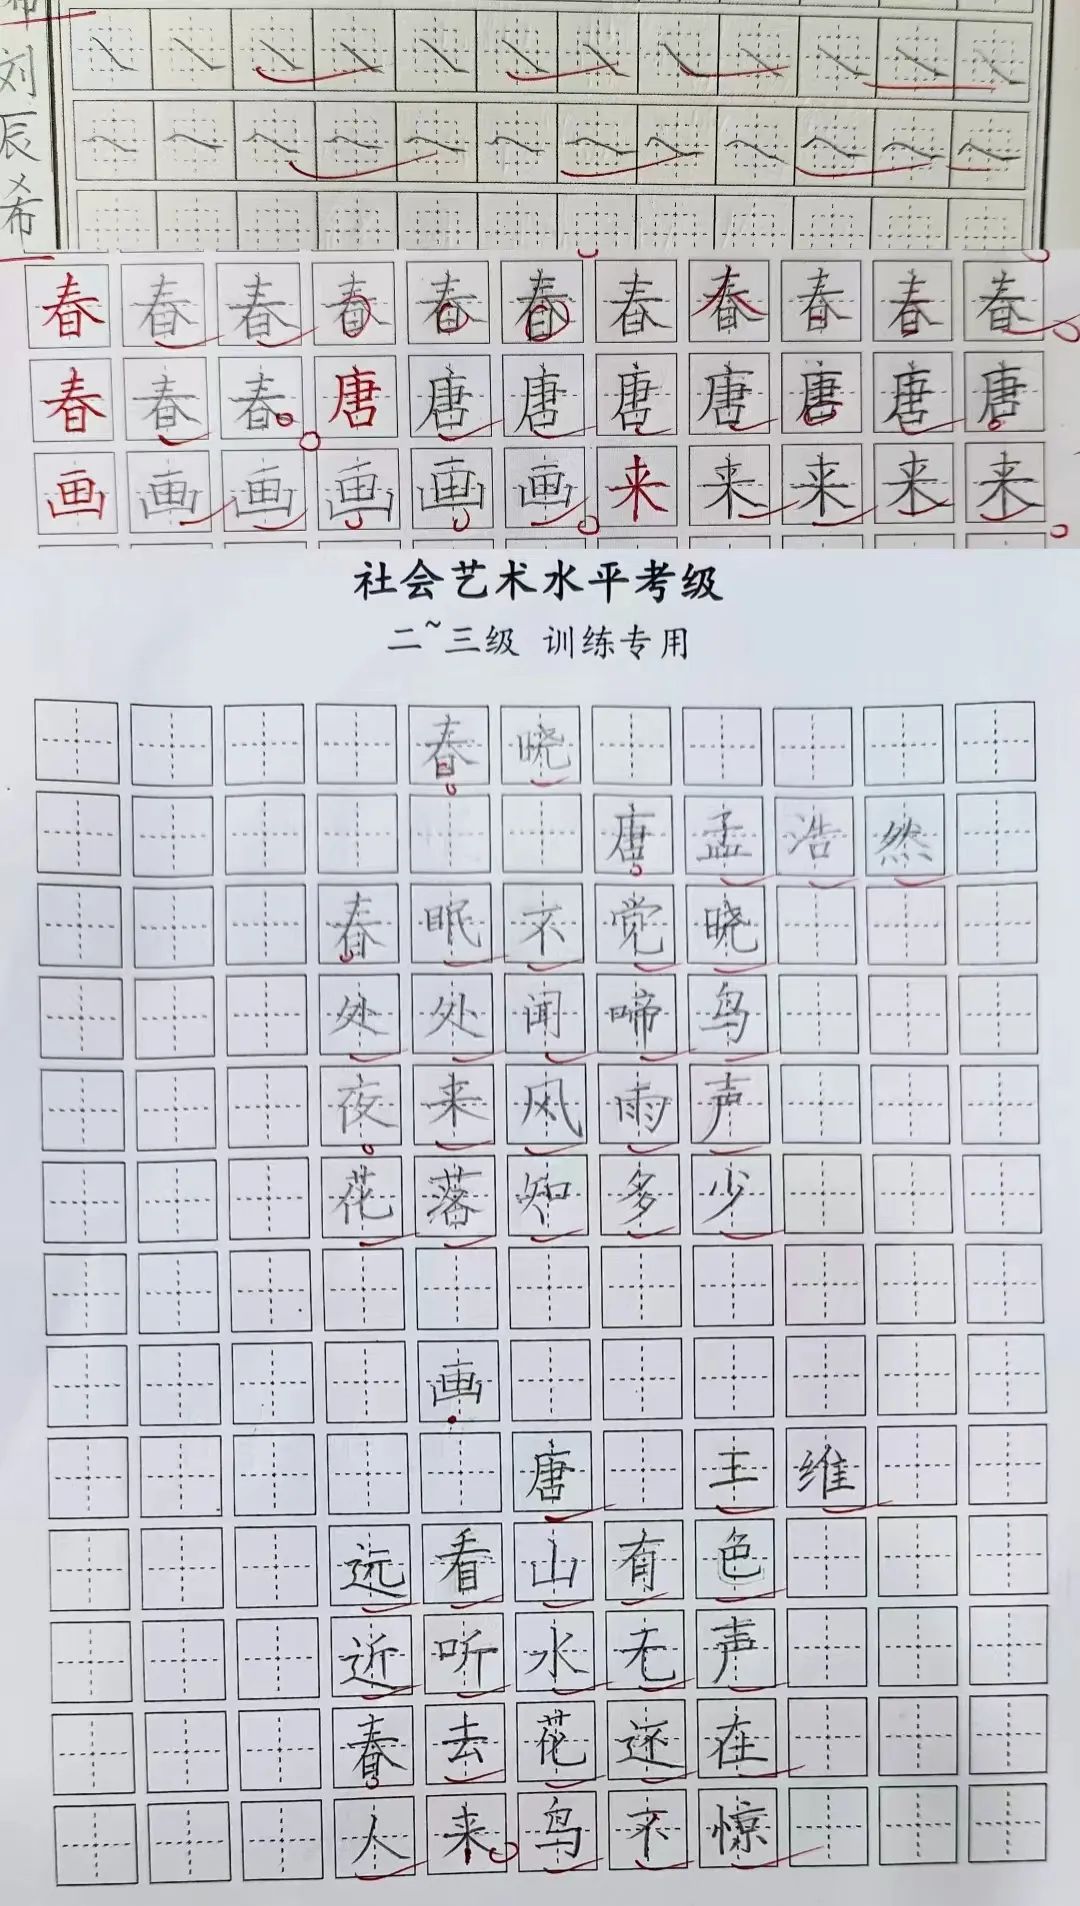 刘辰希
春春春春春春春春春春春
春春春唐唐唐唐唐唐唐唐
画画画画画画来来来来来
社会艺术水平考级
二~三级 训练专用
春晓
唐孟浩然
春眠不觉晓
处处闻啼鸟
夜来风雨声
花落知多少
画
唐 王维
远看山有色
近听水无声
春去花还在
人来鸟不惊